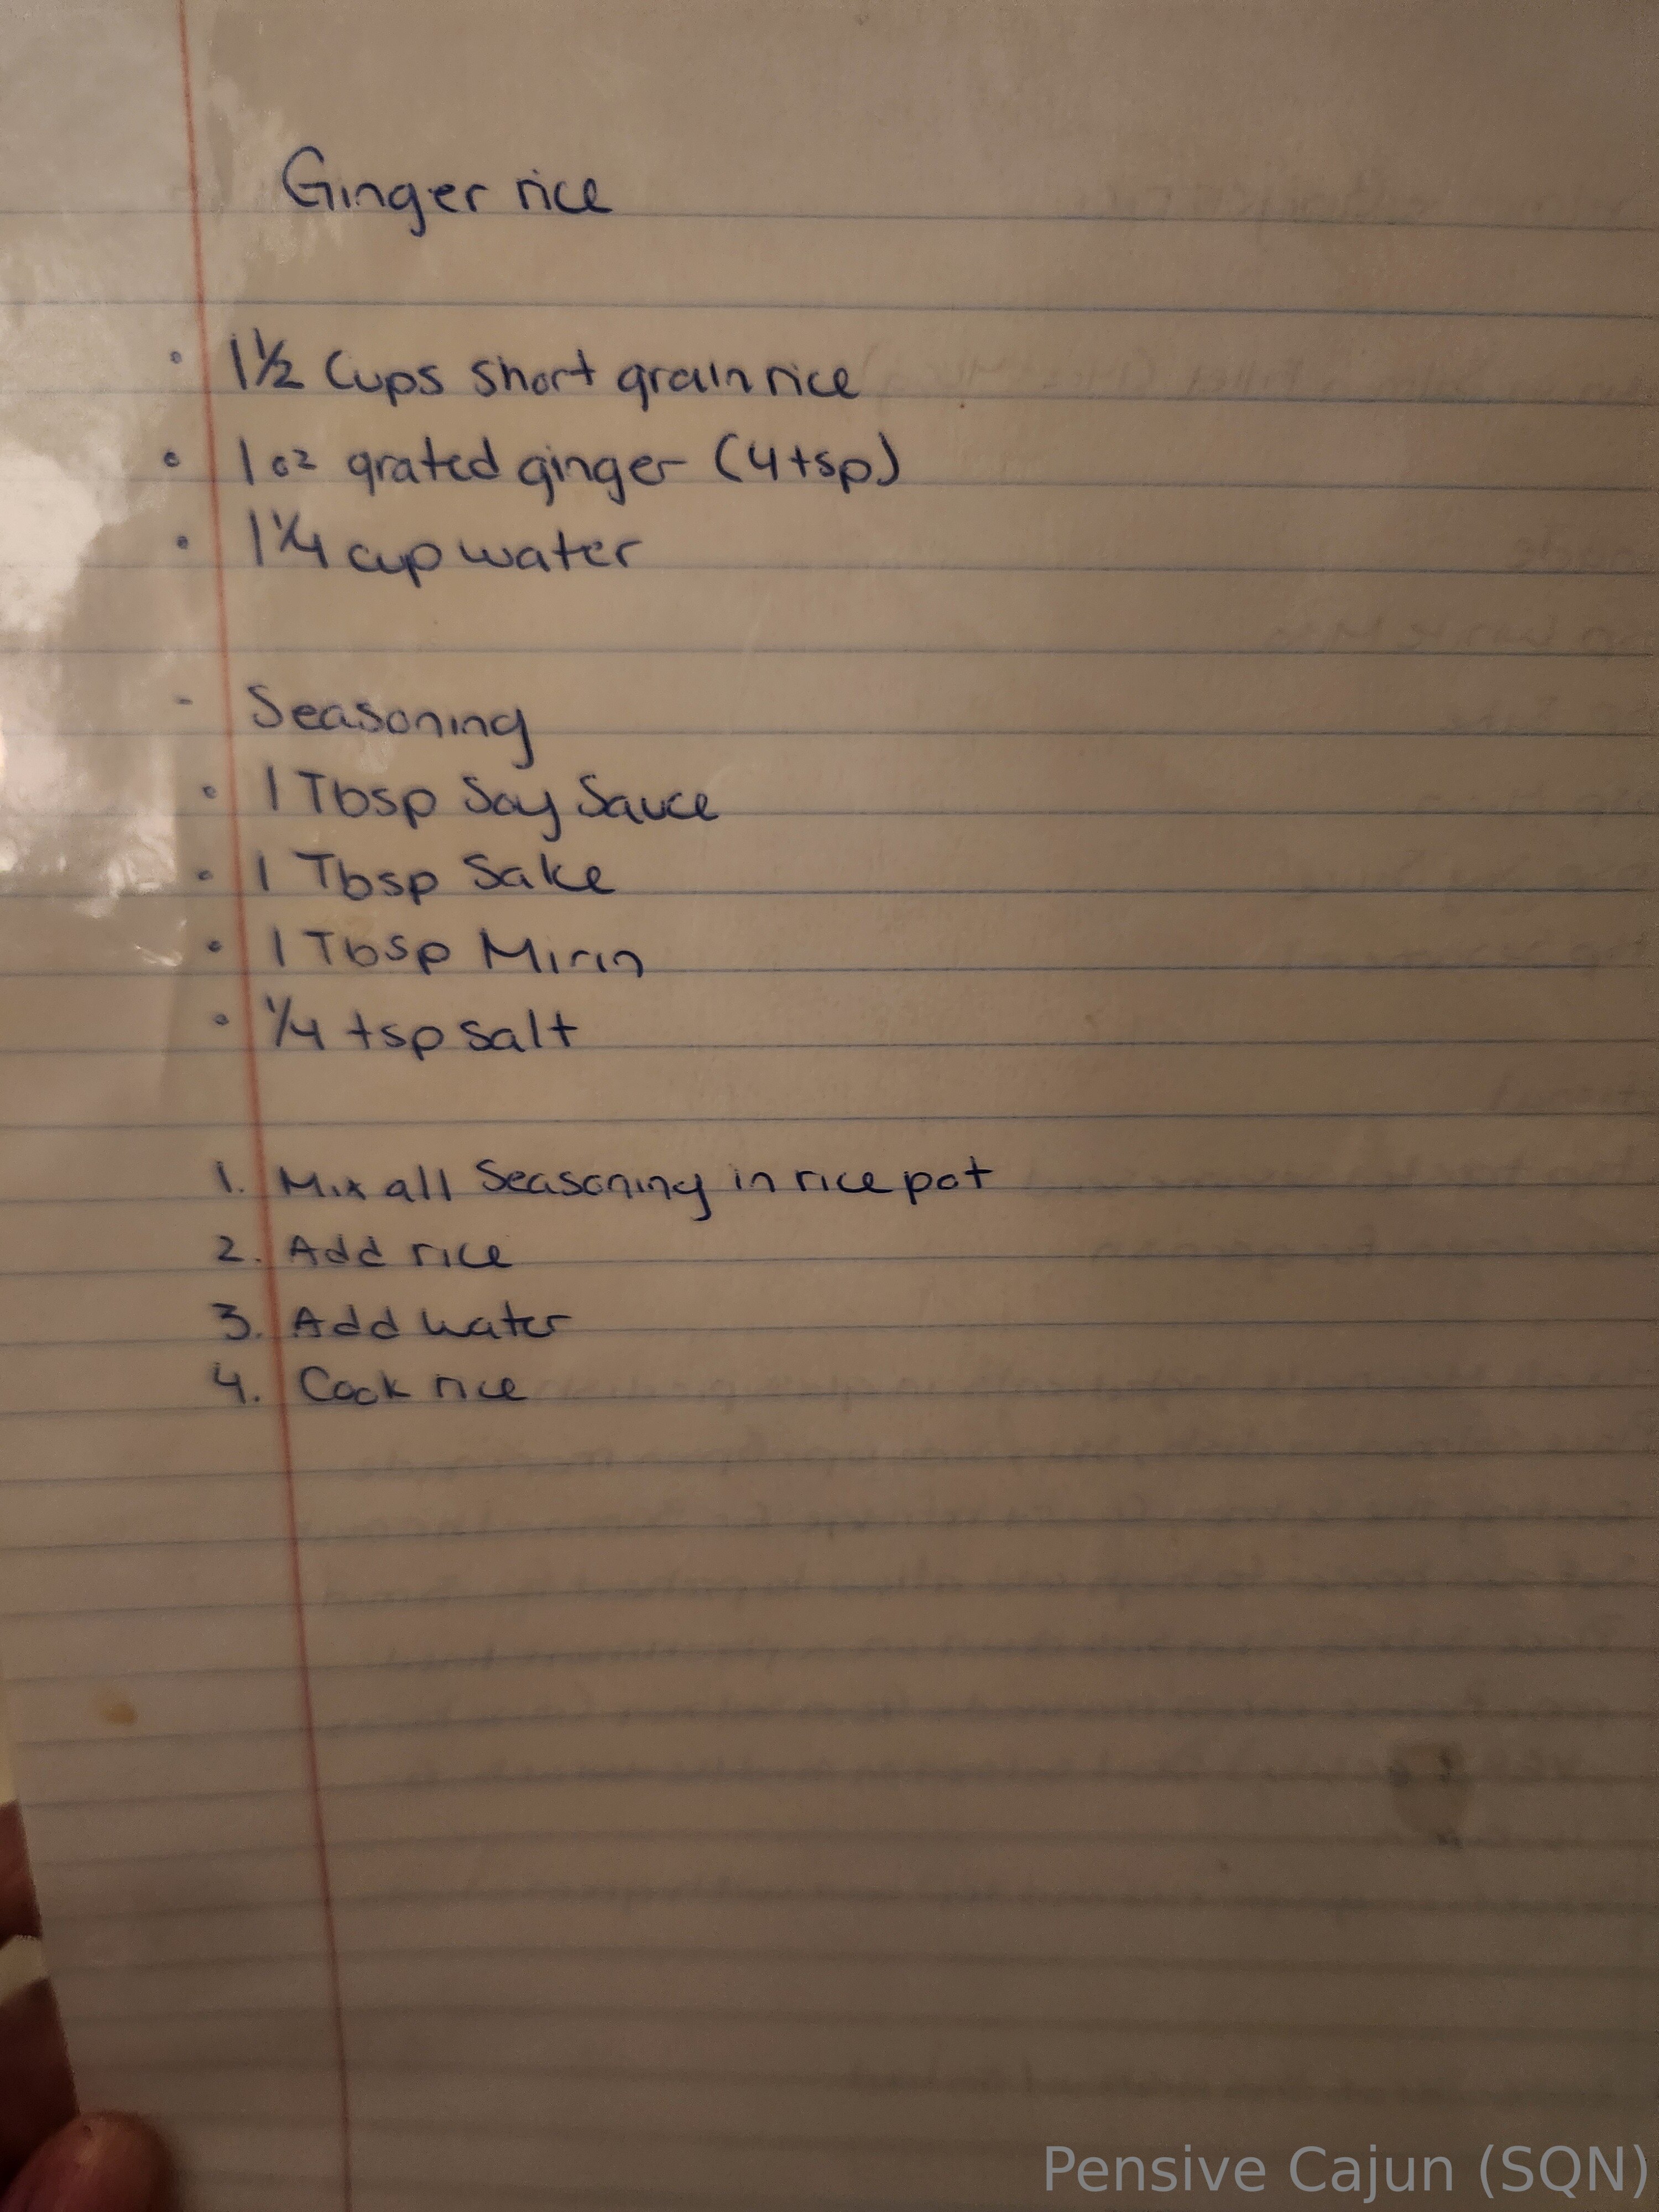 Ginger rice
• 1 1/2 cups short grain rice
• 1 oz grated ginger (4 tsp)
• 1 1/4 cup water
- Seasoning
• 1 Tbsp Soy Sauce
• 1 Tbsp Sake
• 1 Tbsp Mirin
• 1/4 tsp salt
1. Mix all Seasoning in rice pot
2. Add rice
3. Add water
4. Cook rice
Pensive Cajun (SQN)